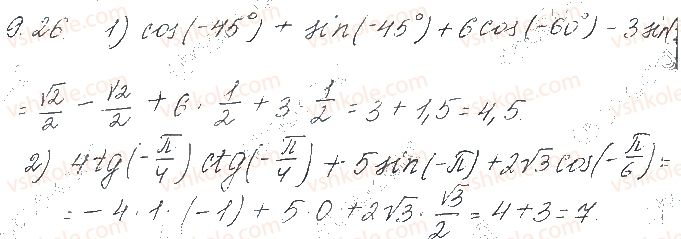 9.26 1) cos(-45°) + sin(-45°) + 6cos(-60°) - 3sin(
= √2/2 - √2/2 + 6 · 1/2 + 3 · 1/2 = 3 + 1,5 = 4,5.
2) 4tg(-π/4) ctg(-π/4) + 5sin(-π) + 2√3cos(-π/6) =
= -4 · 1 · (-1) + 5 · 0 + 2√3 · √3/2 = 4 + 3 = 7.